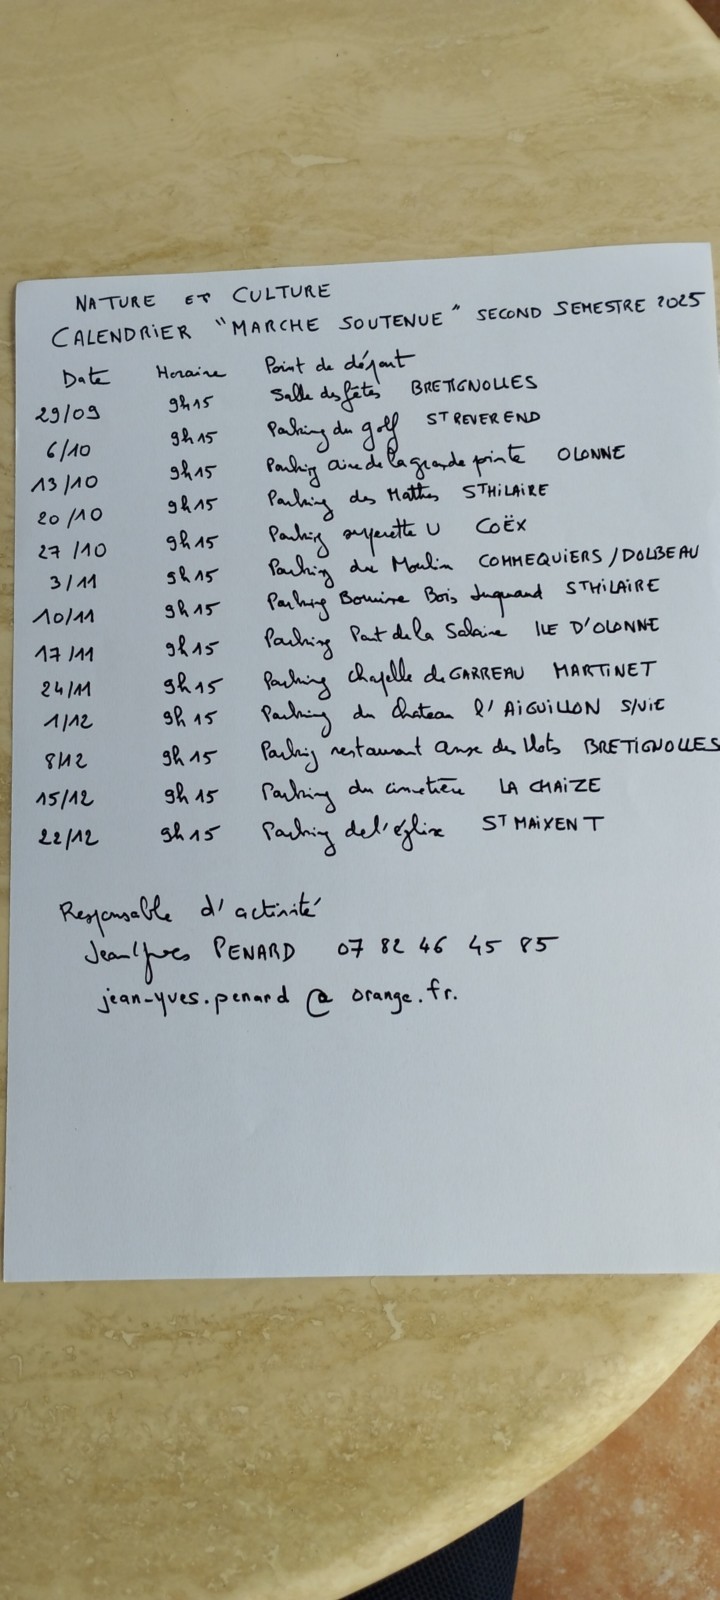 NATURE ET CULTURE
CALENDRIER "MARCHE SOUTENUE" SECOND SEMESTRE 2025
Date Horaire Point de départ
29/09 9h15 Salle des fêtes BRETIGNOLLES
6/10 9h15 Parking du golf ST REVEREND
13/10 9h15 Parking aire de la grande pointe OLONNE
20/10 9h15 Parking des Mathes ST HILAIRE
27/10 9h15 Parking superette U COËX
3/11 9h15 Parking du Moulin COMMEQUIERS/DOLBEAU
10/11 9h15 Parking Bois ST HILAIRE
17/11 9h15 Parking Port de la Salaire ILE D'OLONNE
24/11 9h15 Parking chapelle de GARREAU MARTINET
1/12 9h15 Parking du chateau l'AIGUILLON S/VIE
8/12 9h15 Parking restaurant anse des Ilots BRETIGNOLLES
15/12 9h15 Parking du cimetière LA CHAIZE
22/12 9h15 Parking de l'église ST MAIXENT
Responsable d'activité
Jean Yves PENARD 07 82 46 45 85
jean-yves.penard @ orange.fr.